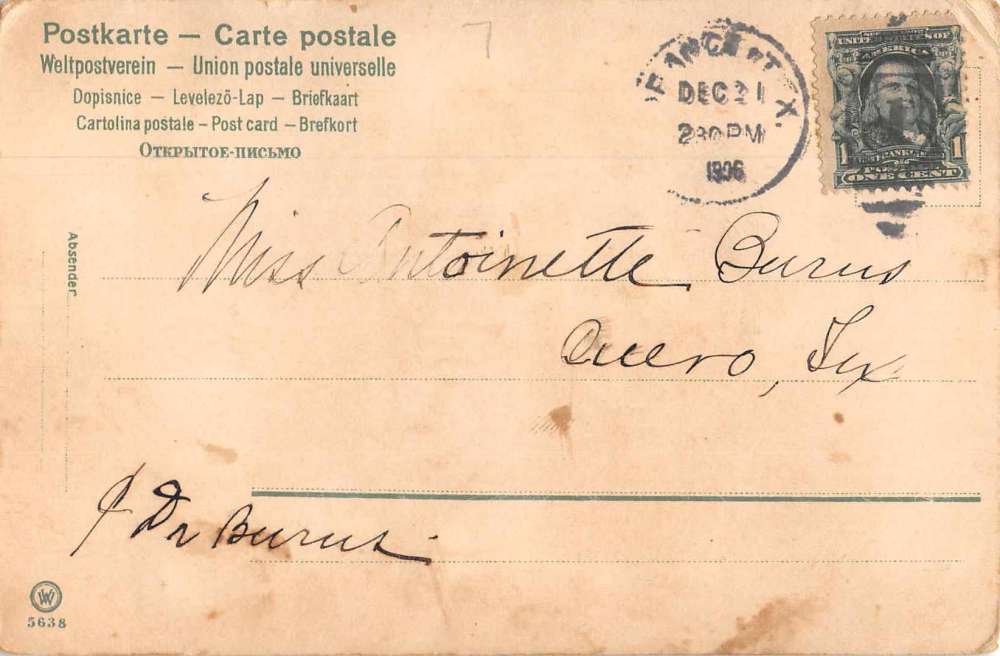 Postkarte — Carte postale
Weltpostverein — Union postale universelle
Dopisnice — Levelező-Lap — Briefkaart
Cartolina postale – Post card – Brefkort
Открытое-письмо
DEC 21
230 PM
1906
UNITED STATES OF
AMERICA
1 1
ONE CENT
Absender
Miss Antoinette Burns
Cuero, Tex
Dr Burns
5638